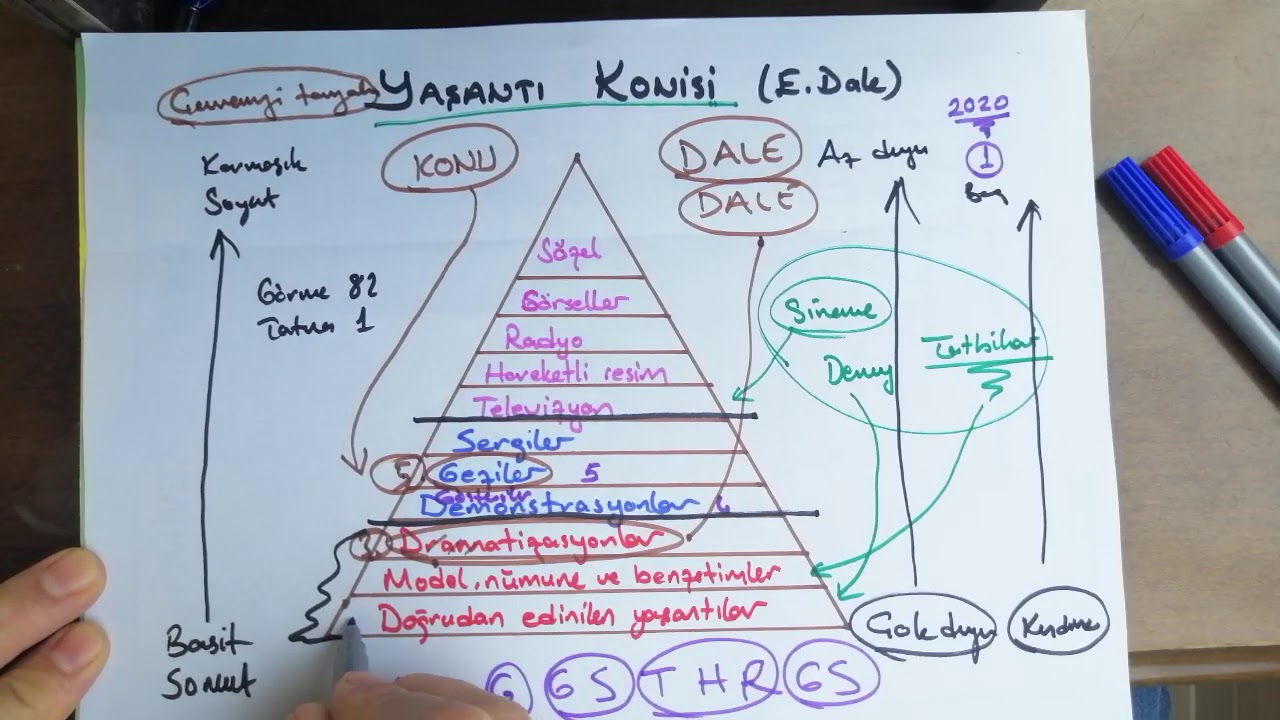 YAŞANTI KONİSİ (E.Dale)
2020
1
Karmaşık
Soyut
KONU
DALE
DALE
Az duyu
Görme 82
Tatma 1
Sözel
Görseller
Radyo
Hareketli resim
Televizyon
Sergiler
5 Geziler 5
Demonstrasyonlar
Dramatizasyonlar
Model, nümune ve benzetimler
Doğrudan edinilen yaşantılar
Sinema
Deney
Tatbikat
Basit
Somut
Çok duyu
Kendine
G GS THR GS